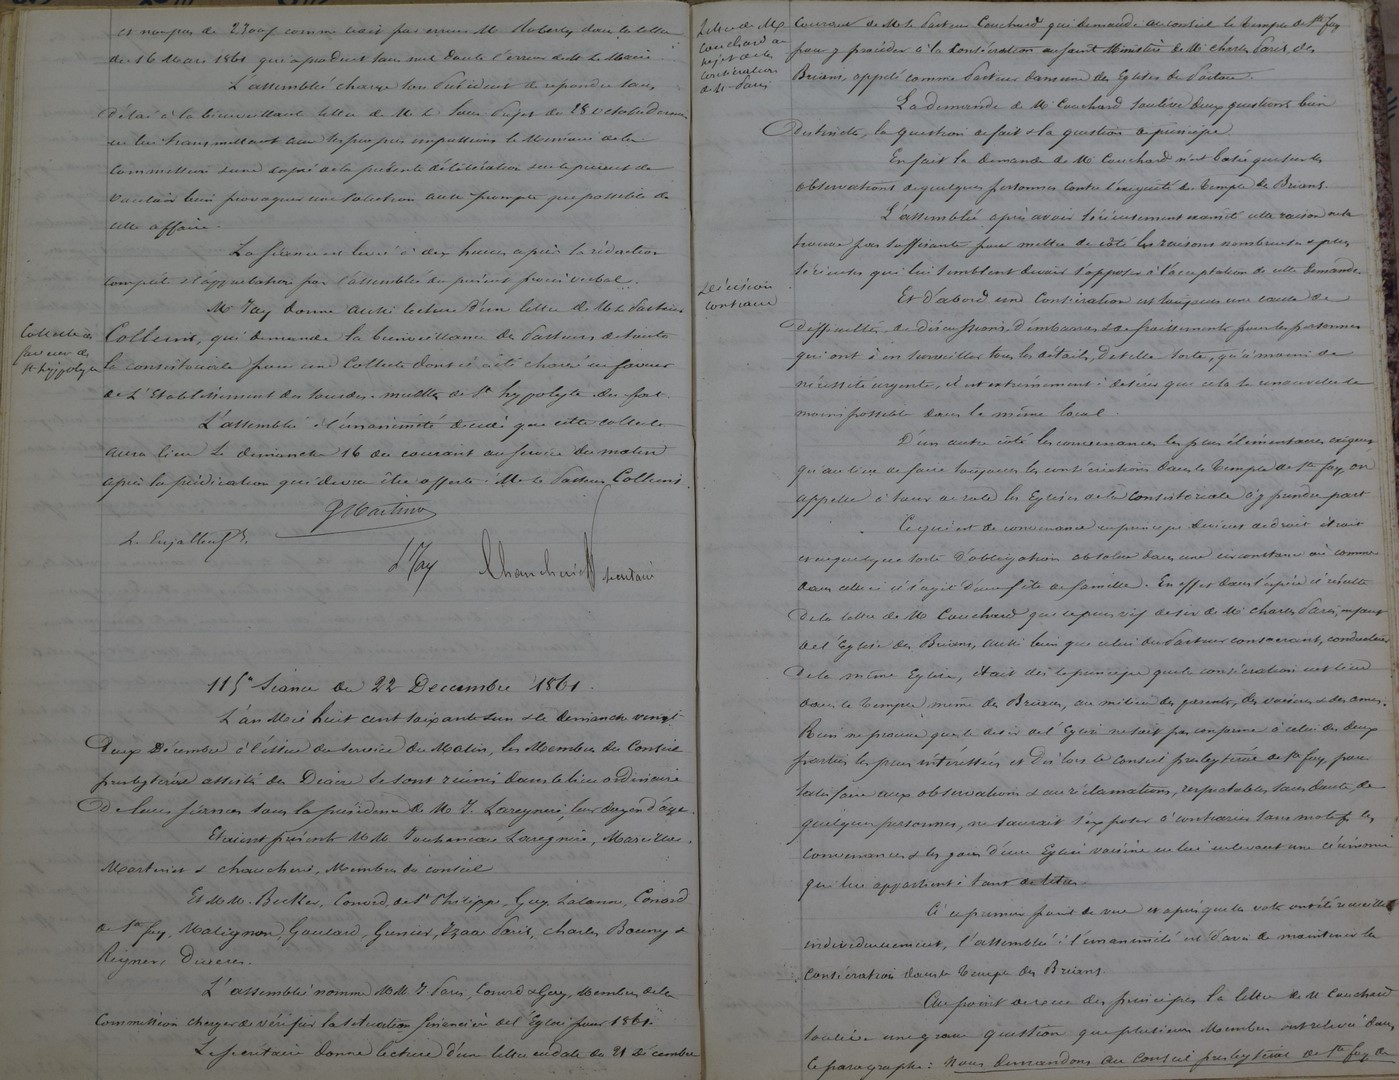 et non pas de 2300f comme écrit par erreur Mr Roberty dans la lettre
du 16 Mars 1861 qui a produit sans nul doute l'erreur de Mr le Maire.
L'assemblée charge son Président de répondre sans
délai à la bienveillante lettre de Mr le Sous Préfet du 28 octobre dernier
en lui transmettant avec
Commission & une copie de la présente délibération en le priant de
vouloir bien provoquer une solution aussi prompte que possible de
cette affaire.
La séance est levée à dix heures après la rédaction
complète & l'approbation par l'assemblée du présent procès verbal.
Mr Jay donne aussi lecture d'une lettre de Mr le Pasteur
Collecte en
faveur de
St hyppolyte
Collins, qui demande la bienveillance des Pasteurs de toute
la consistoriale pour une Collecte dont il a été chargé en faveur
de l'Etablissement des sourds-muets de St hyppolyte du fort.
L'assemblée à l'unanimité décide que cette collecte
aura lieu le dimanche 16 du courant au service du matin
après la prédication qui devra être offerte à Mr le Pasteur Collins.
Martinet
L. Pujolle
L Jay
Chaucherie secrétaire
115e Séance du 22 Décembre 1861.
L'an Mil huit cent soixante un & le dimanche vingt
Deux Décembre à l'issue du service du Matin, les Membres du Conseil
presbytéral assisté des Diacres se sont réunis dans le lieu ordinaire
de leurs séances sous la présidence de Mr J. Laregnère, leur doyen d'âge.
Etaient présents MM Laregnère, Mareilhac,
Martinet & Chaucherie, Membres du conseil
Et MM. Becker, Conord, de St Philippe, Guy Lalanne, Conord
de Ste foy, Matignon, Goulard, Grenier, Isaac Paris, Charles Bouny &
Reynier, Diacres.
L'assemblée nomme MM J. Paris, Conord & Guy, Membres de la
Commission chargée de vérifier la situation financière de l'Eglise pour 1861.
Le secrétaire donne lecture d'une lettre en date du 21 décembre
Lettre de Mr
Couchard au
sujet de la
consécration
de Mr Paris
courant de Mr le Pasteur Couchard qui demande au conseil le Temple de Ste foy
pour y procéder à la Consécration au saint Ministère de Mr Charles Paris, des
Briens, appelé comme Pasteur dans une des Eglises du Poitou.
La demande de Mr Couchard soulève deux questions bien
distinctes, la question de fait & la question de principe.
En fait la demande de Mr Couchard n'est basée que sur les
observations de quelques personnes contre l'exiguité du Temple des Briens.
L'assemblée après avoir sérieusement examiné cette raison ne la
trouve pas suffisante pour mettre de côté les raisons nombreuses & plus
sérieuses qui lui semblent devoir s'opposer à l'acceptation de cette demande.
Décision
contraire
Et d'abord une Consécration est toujours une cause de
difficultés, de discussions, d'embarras & de froissements pour les personnes
qui ont à en surveiller tous les détails, de telle sorte, qu'à moins de
nécessité urgente, il est extrêmement à désirer que cela se renouvelle le
moins possible dans le même local.
D'un autre côté les convenances les plus élémentaires exigent
qu'au lieu de faire toujours les consécrations dans le Temple de Ste foy, on
appelle à tour de rôle les Eglises de la Consistoriale à y prendre part
Ce qui est de convenance en principe devient de droit étroit
et en quelque sorte d'obligation absolue dans une circonstance où comme
dans celle-ci il s'agit d'une fête de famille. En effet dans l'espèce il résulte
de la lettre de Mr Couchard que le plus vif désir de Mr Charles Paris, enfant
de l'Eglise des Briens, aussi bien que celui du Pasteur consacrant, conducteur
de la même Eglise, était dès le principe que la consécration eut lieu
dans le Temple même des Briens, au milieu des parents, des voisins & des amis.
Rien ne prouve que le désir de l'Eglise ne soit pas conforme à celui des deux
parties les plus intéressées et dès lors le conseil presbytéral de Ste foy, pour
satisfaire aux observations & aux réclamations, respectables sans doute, de
quelques personnes, ne saurait s'exposer à contrarier sans motif les
convenances & les goûts d'une Eglise voisine en lui enlevant une cérémonie
qui lui appartient à tant de titres.
A ce premier point de vue et après que les votes ont été recueillis
individuellement, l'assemblée à l'unanimité est d'avis de maintenir la
consécration dans le Temple des Briens.
Au point de vue des principes la lettre de Mr Couchard
soulève une grave question que plusieurs Membres ont relevée dans
le paragraphe : Nous demandons au Conseil presbytéral de Ste foy de